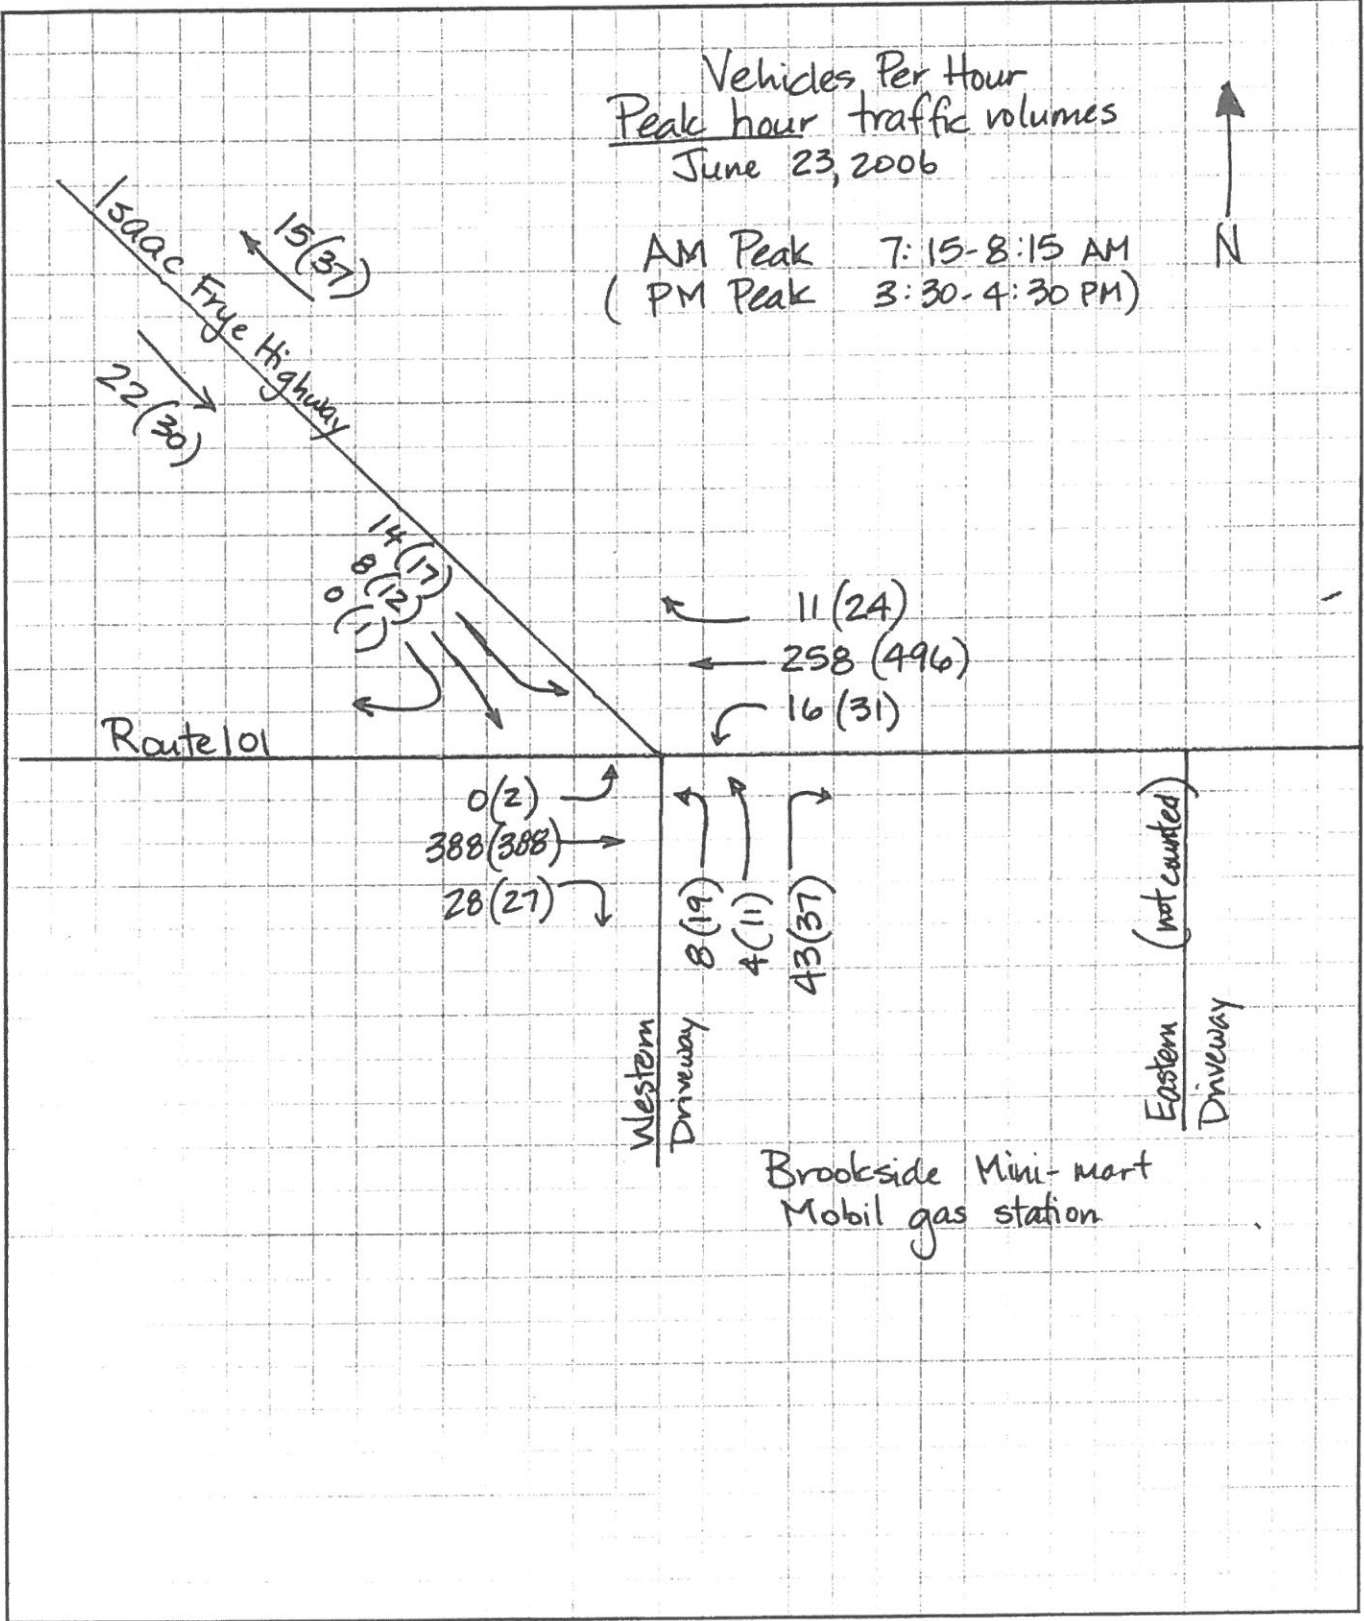 Vehicles Per Hour
Peak hour traffic volumes
June 23, 2006
AM Peak 7:15-8:15 AM
( PM Peak 3:30-4:30 PM)
N
Isaac Frye Highway
15(37)
22(30)
14(17)
8(12)
0(1)
11(24)
258(496)
16(31)
Route 101
0(2)
388(388)
28(27)
8(19)
4(11)
43(37)
(not counted)
Western
Driveway
Eastern
Driveway
Brookside Mini-mart
Mobil gas station